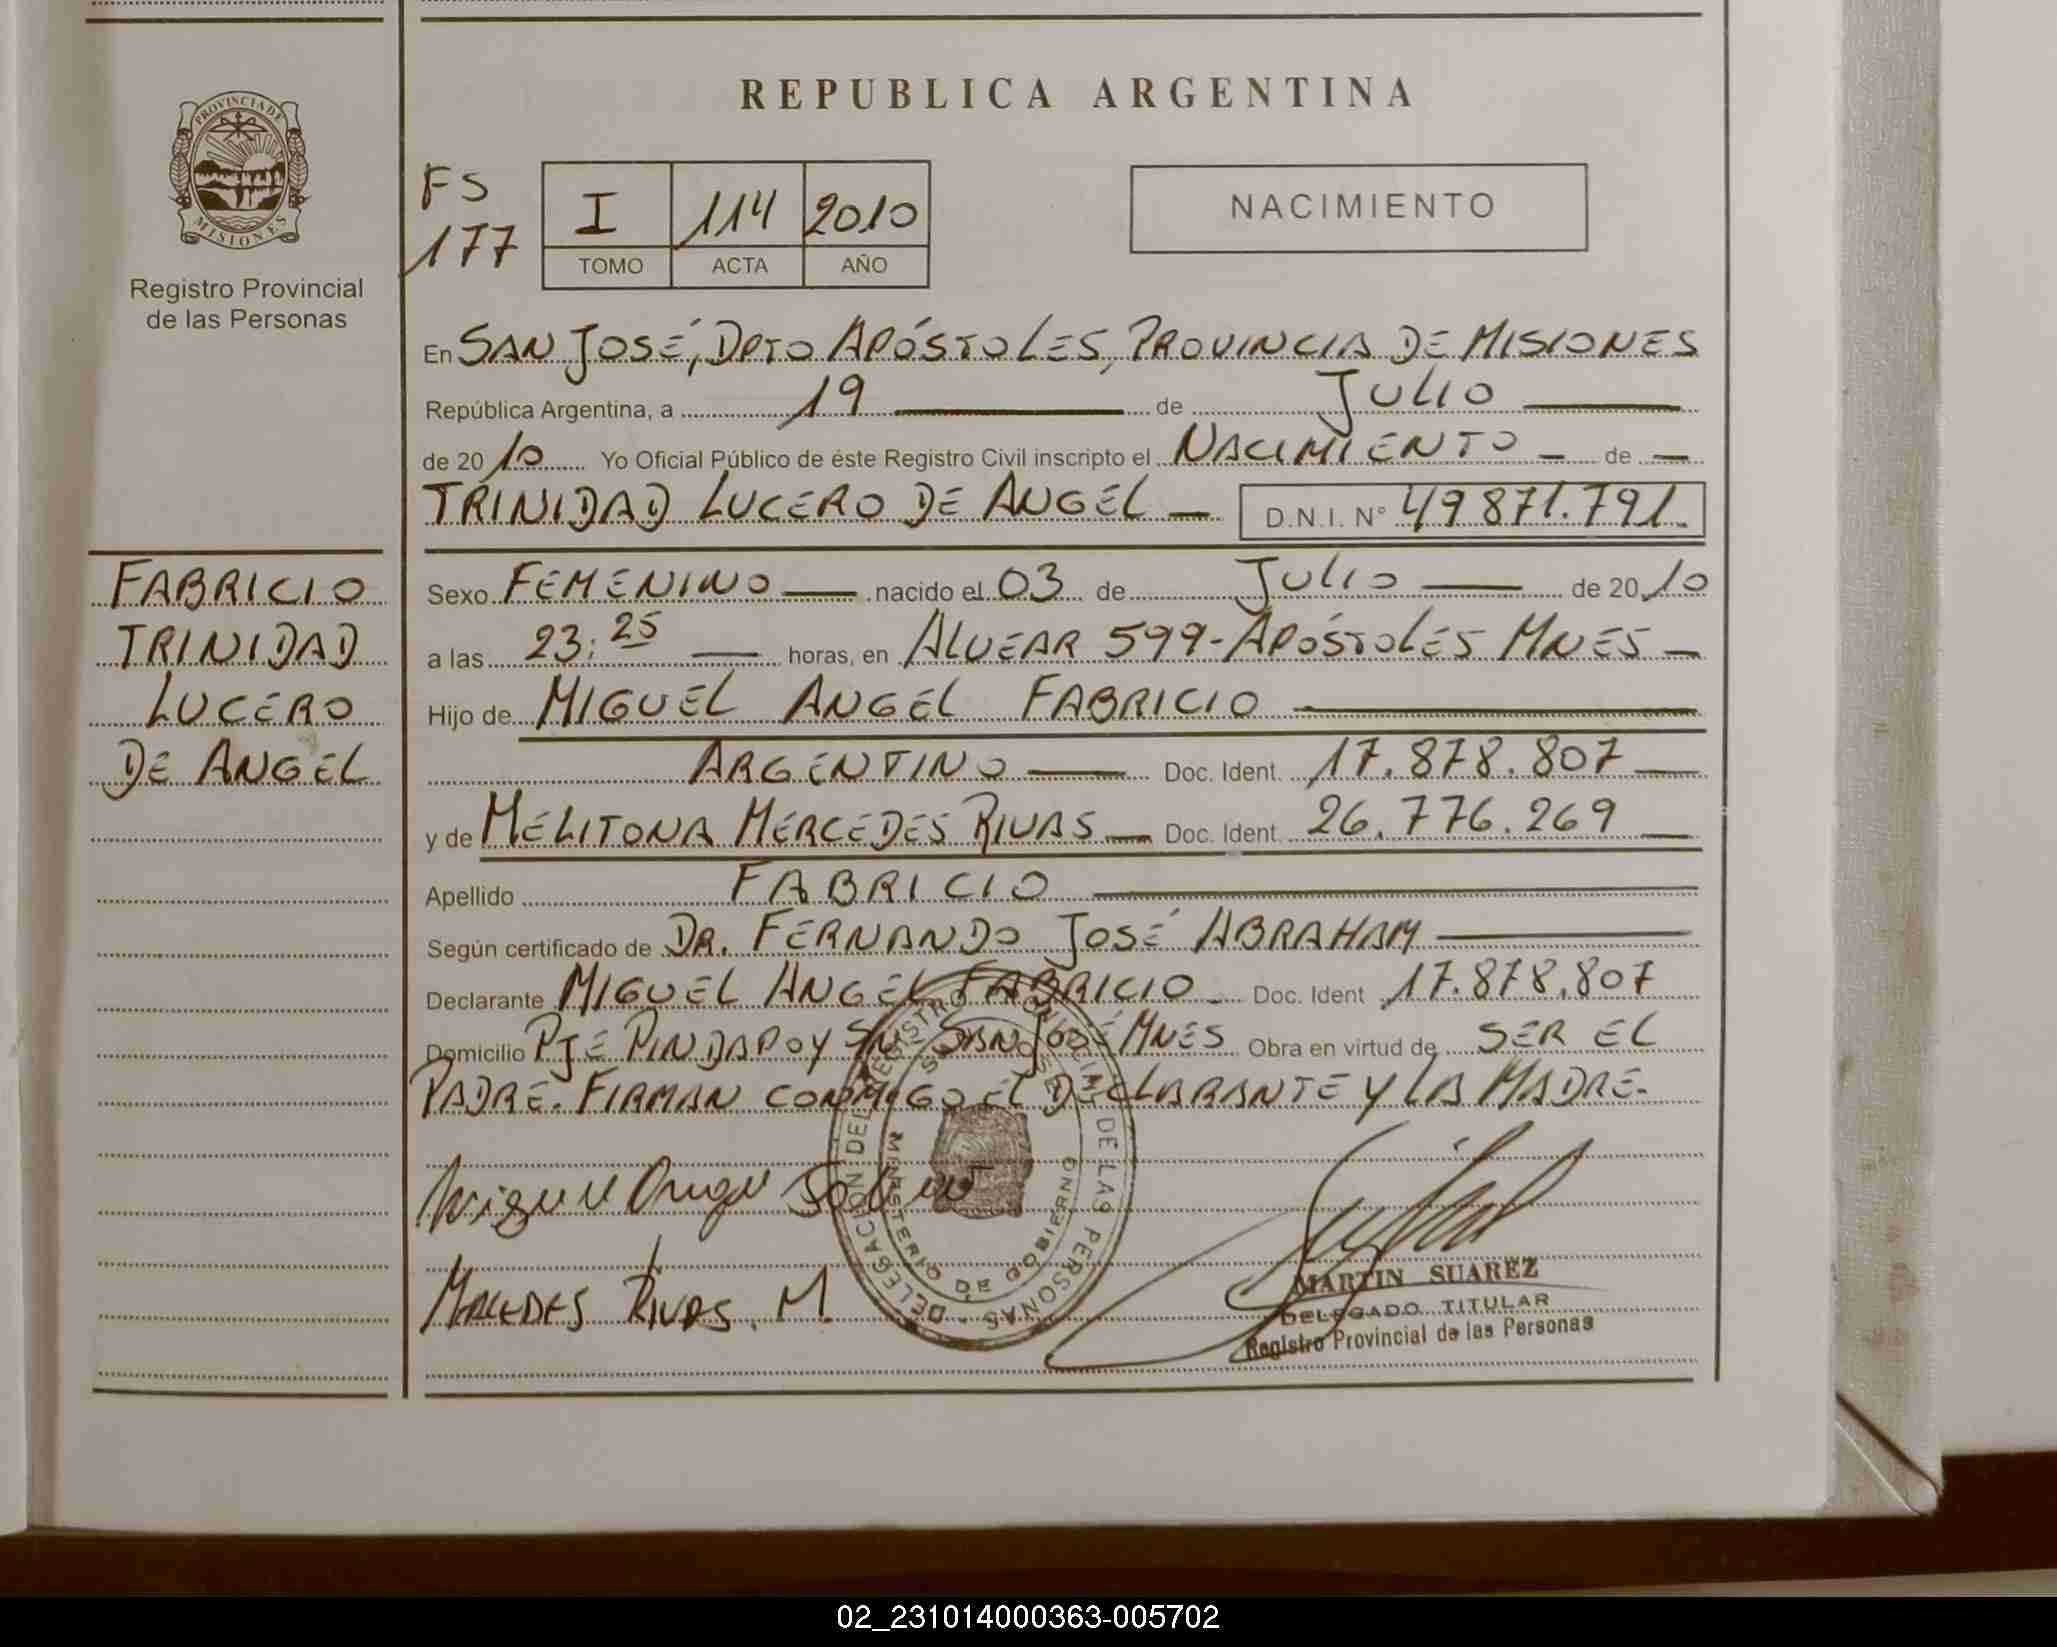 PROVINCIA DE
MISIONES
Registro Provincial
de las Personas
FABRICIO
TRINIDAD
LUCERO
DE ANGEL
REPUBLICA ARGENTINA
FS
177
I 114 2010
TOMO ACTA AÑO
NACIMIENTO
En SAN JOSÉ, DPTO APÓSTOLES, PROVINCIA DE MISIONES
República Argentina, a 19 de JULIO
de 2010 Yo Oficial Público de éste Registro Civil inscripto el NACIMIENTO de
TRINIDAD LUCERO DE ANGEL D.N.I. N° 49871.791.
Sexo FEMENINO nacido el 03 de JULIO de 2010
a las 23:25 horas, en ALVEAR 599-APÓSTOLES MNES
Hijo de MIGUEL ANGEL FABRICIO
ARGENTINO Doc. Ident. 17.878.807
y de MELITONA MERCEDES RIVAS Doc. Ident. 26.776.269
Apellido FABRICIO
Según certificado de DR. FERNANDO JOSÉ ABRAHAM
Declarante MIGUEL ANGEL FABRICIO Doc. Ident 17.878.807
Domicilio PJE PINDAPOY SN SAN JOSÉ MNES Obra en virtud de SER EL
PADRE. FIRMAN CONMIGO EL DECLARANTE Y LA MADRE.
DELEGACION DEL REGISTRO PROVINCIAL DE LAS PERSONAS
SAN JOSE
MINISTERIO DE GOBIERNO
Miguel Angel
MERCEDES RIVAS. M.
MARTIN SUAREZ
DELEGADO TITULAR
Registro Provincial de las Personas
02_231014000363-005702